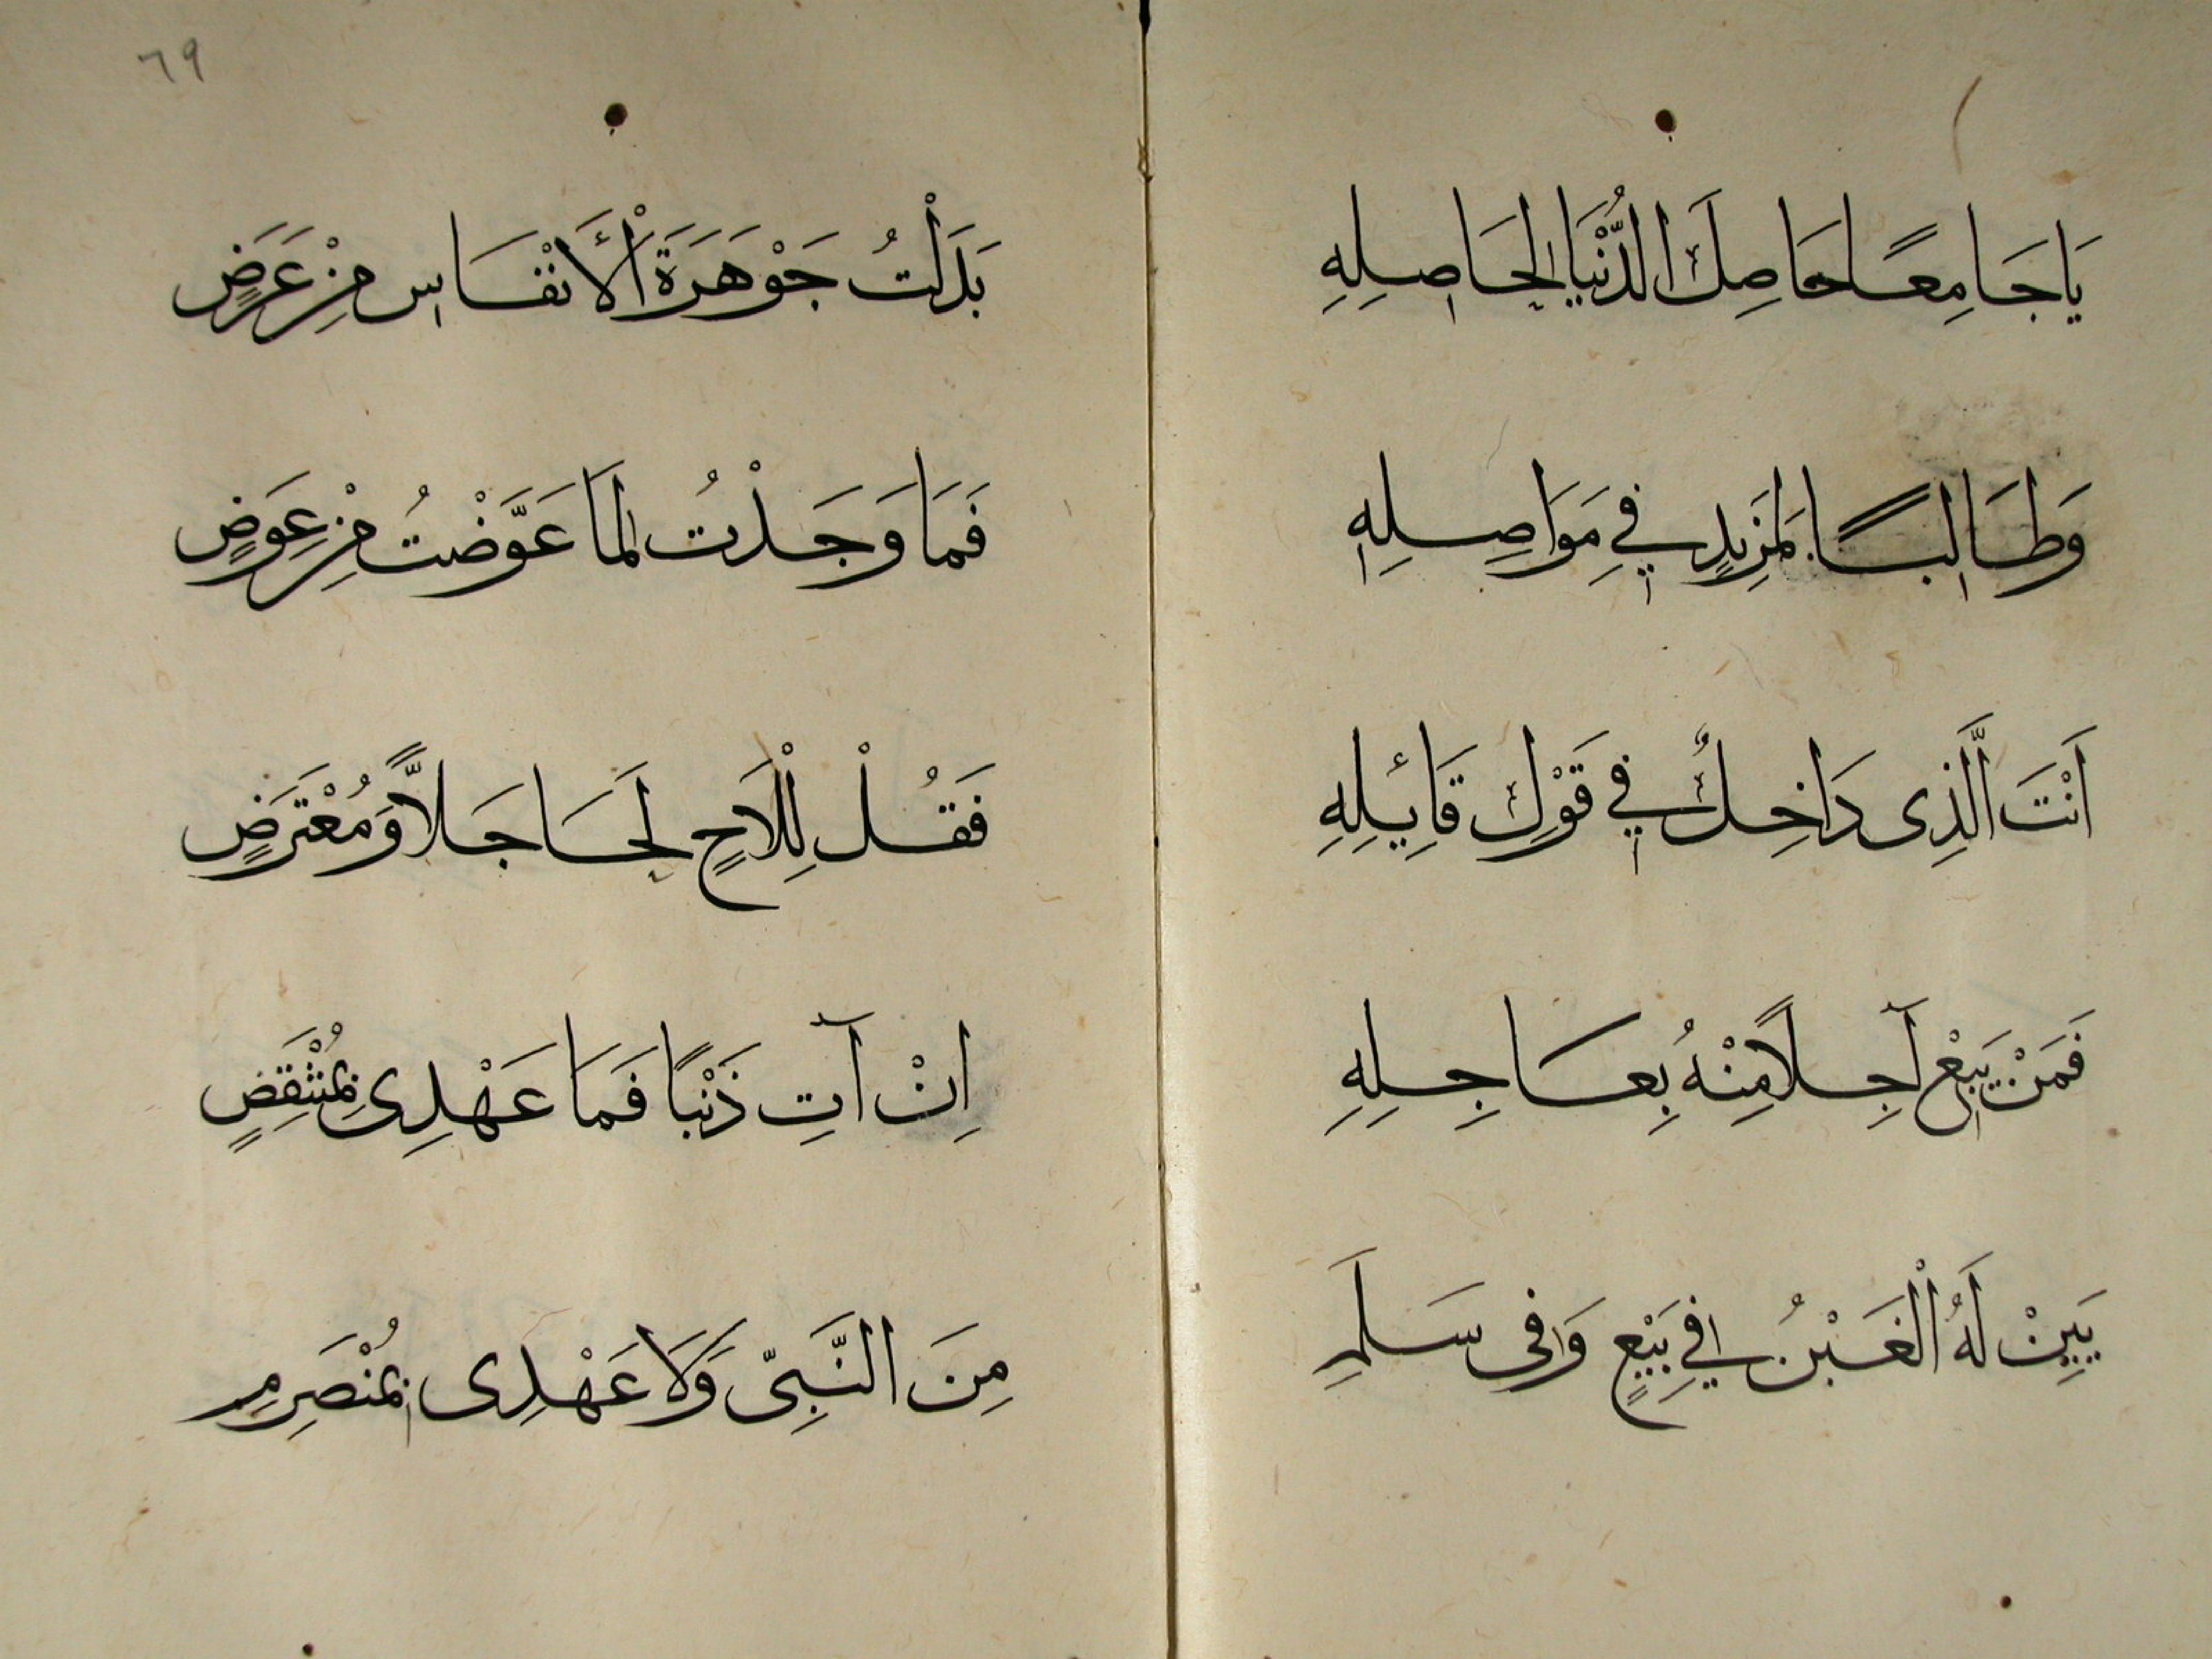 يَا جَامِعًا حَاصِلَ الدُّنْيَا لِحَاصِلِهِ
وَطَالِبًا لِمَزِيدٍ فِي مَوَاصِلِهِ
اَنْتَ الَّذِى دَاخِلٌ فِي قَوْلِ قَائِلِهِ
فَمَنْ يَبِعْ آجِلًا مِنْهُ بِعَاجِلِهِ
يَبِنْ لَهُ الْغَبْنُ فِي بَيْعٍ وَفِى سَلَمِ
٦٩
بَدَلْتُ جَوْهَرَةَ الْأَنْفَاسِ مِنْ عَرَضٍ
فَمَا وَجَدْتُ لِمَا عَوَّضْتُ مِنْ عِوَضٍ
فَقُلْ لِلَاحٍ لَحَا جَلًّا وَمُعْتَرَضٍ
اِنْ آتِ ذَنْبًا فَمَا عَهْدِى بِمُنْتَقِضٍ
مِنَ النَّبِىِّ وَلَا عَهْدِى بِمُنْصَرِمِ